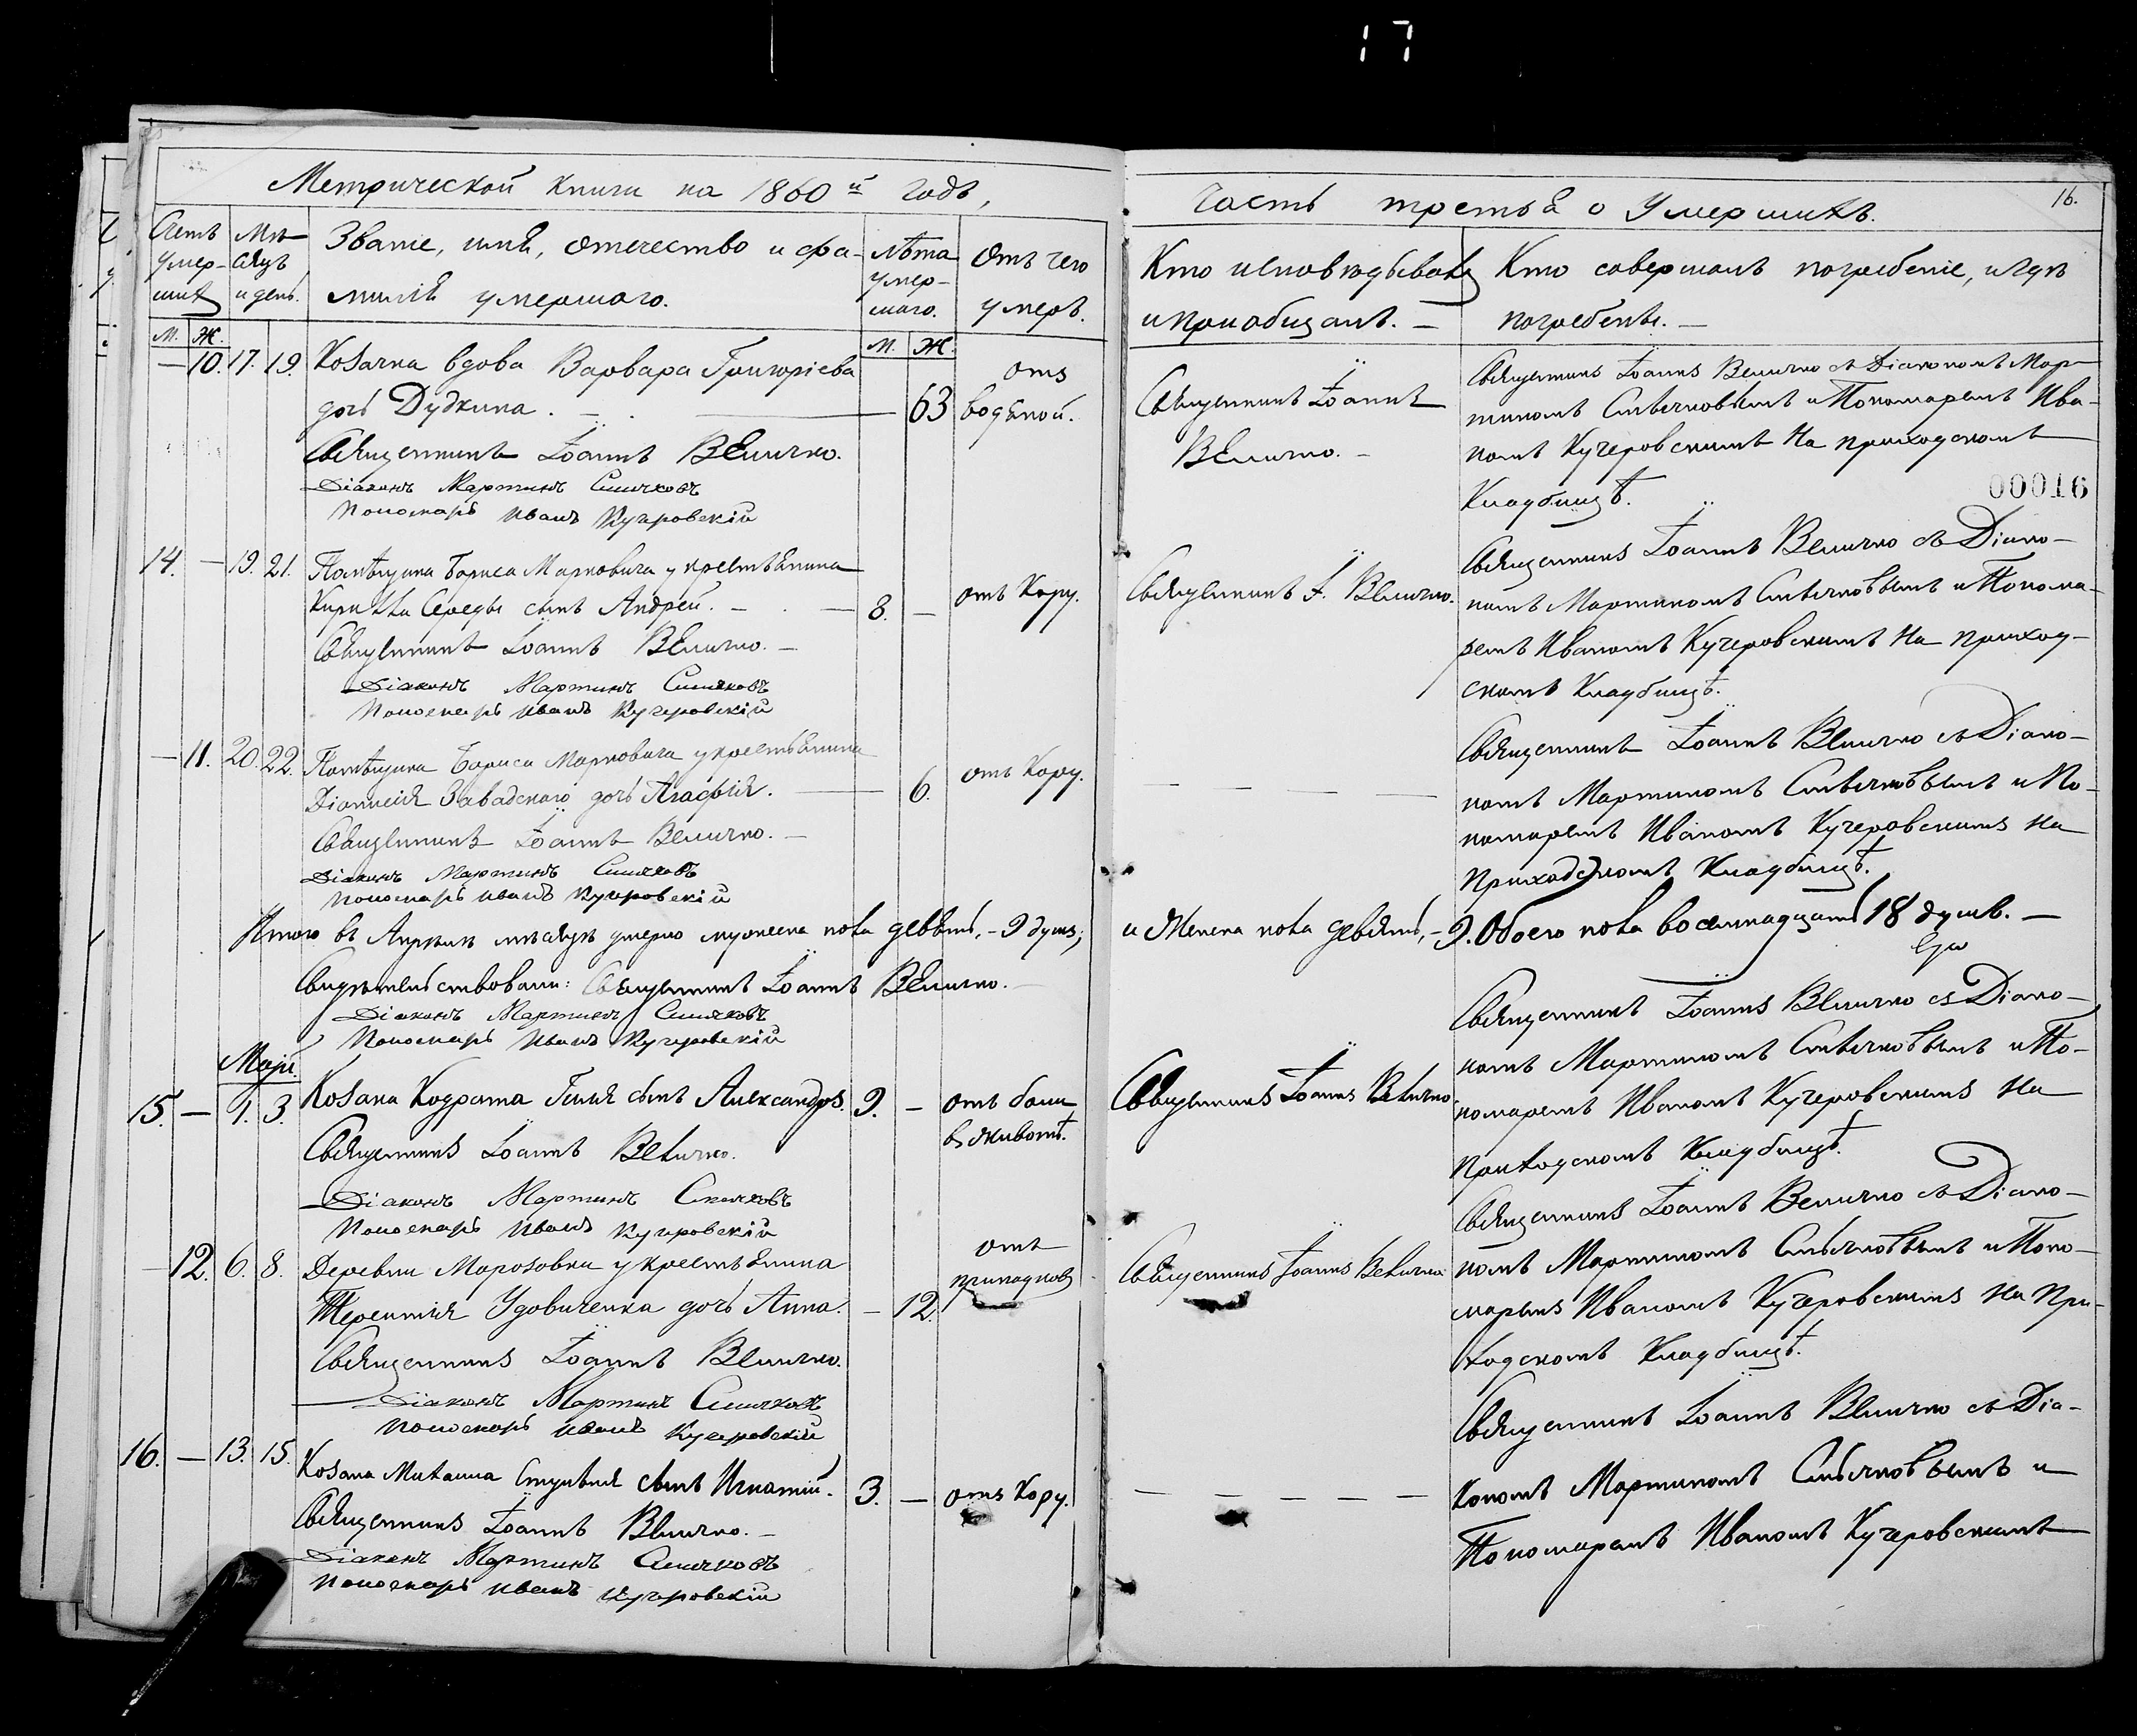 17
Метрической книги на 1860й годъ,
Счетъ умер-шихъ
Мѣ-сяцъ и день.
Званіе, имя, отечество и фа-
милія умершаго.
Лѣта умер-шаго.
Отъ чего умеръ.
М. Ж.
М. Ж.
— 10. 17. 19. Козачка вдова Варвара Григоріева
дочь Дудкина. — 63 отъ водяной.
Священникъ Іоаннъ Величко.
Діаконъ Мартинъ
Пономарь Иванъ Кучеровскій
14. — 19. 21. Помѣщика Бориса Марковича у крестьянина
Кирилла Середы сынъ Андрей. — 8. — отъ кору.
Священникъ Іоаннъ Величко. —
Діаконъ Мартинъ
Пономарь Иванъ Кучеровскій
— 11. 20. 22. Помѣщика Бориса Марковича у крестьянина
Діонисія Завадскаго дочь Агафія. — 6. отъ кору.
Священникъ Іоаннъ Величко. —
Діаконъ Мартинъ
Пономарь Иванъ Кучеровскій
Итого въ Апрѣлѣ мѣсяцѣ умерло мужеска пола девять, - 9 душъ;
Свидѣтельствовали: Священникъ Іоаннъ Величко. —
Діаконъ Мартинъ
Пономарь Иванъ Кучеровскій
Маій.
15. — 1. 3. Козака Кодрата сынъ Александръ. 9. — отъ боли
въ животѣ.
Священникъ Іоаннъ Величко.
Діаконъ Мартинъ
Пономарь Иванъ Кучеровскій
— 12. 6. 8. Деревни Морозовки у крестьянина
Терентія Удовиченка дочь Анна. — 12. отъ припадковъ
Священникъ Іоаннъ Величко.
Діаконъ Мартинъ
Пономарь Иванъ Кучеровскій
16. — 13. 15. Козака Михаила сынъ Игнатій. 3. — отъ кору.
Священникъ Іоаннъ Величко. —
Діаконъ Мартинъ
Пономарь Иванъ Кучеровскій
Часть третья о Умершихъ.
16.
Кто исповѣдывалъ
и приобщалъ. —
Кто совершалъ погребеніе, и гдѣ
погребены. —
Священникъ Іоаннъ
Величко. —
Священникъ Іоаннъ Величко съ Діакономъ Мар-
тиномъ и Пономаремъ Ива-
номъ Кучеровскимъ на приходскомъ
кладбищѣ.
00016
Священникъ І. Величко.
Священникъ Іоаннъ Величко съ Діако-
номъ Мартиномъ и Понома-
ремъ Иваномъ Кучеровскимъ на приход-
скомъ кладбищѣ.
— — — —
Священникъ Іоаннъ Величко съ Діако-
номъ Мартиномъ и По-
номаремъ Иваномъ Кучеровскимъ на
приходскомъ кладбищѣ.
и женска пола девять, - 9. Обоего пола восемнадцать 18 душъ. —
Священникъ Іоаннъ Величко
Священникъ Іоаннъ Величко съ Діако-
номъ Мартиномъ и По-
номаремъ Иваномъ Кучеровскимъ на
приходскомъ кладбищѣ.
Священникъ Іоаннъ Величко
Священникъ Іоаннъ Величко съ Діако-
номъ Мартиномъ и Поно-
маремъ Иваномъ Кучеровскимъ на при-
ходскомъ кладбищѣ.
— — — — —
Священникъ Іоаннъ Величко съ Діа-
кономъ Мартиномъ и
Пономаремъ Иваномъ Кучеровскимъ